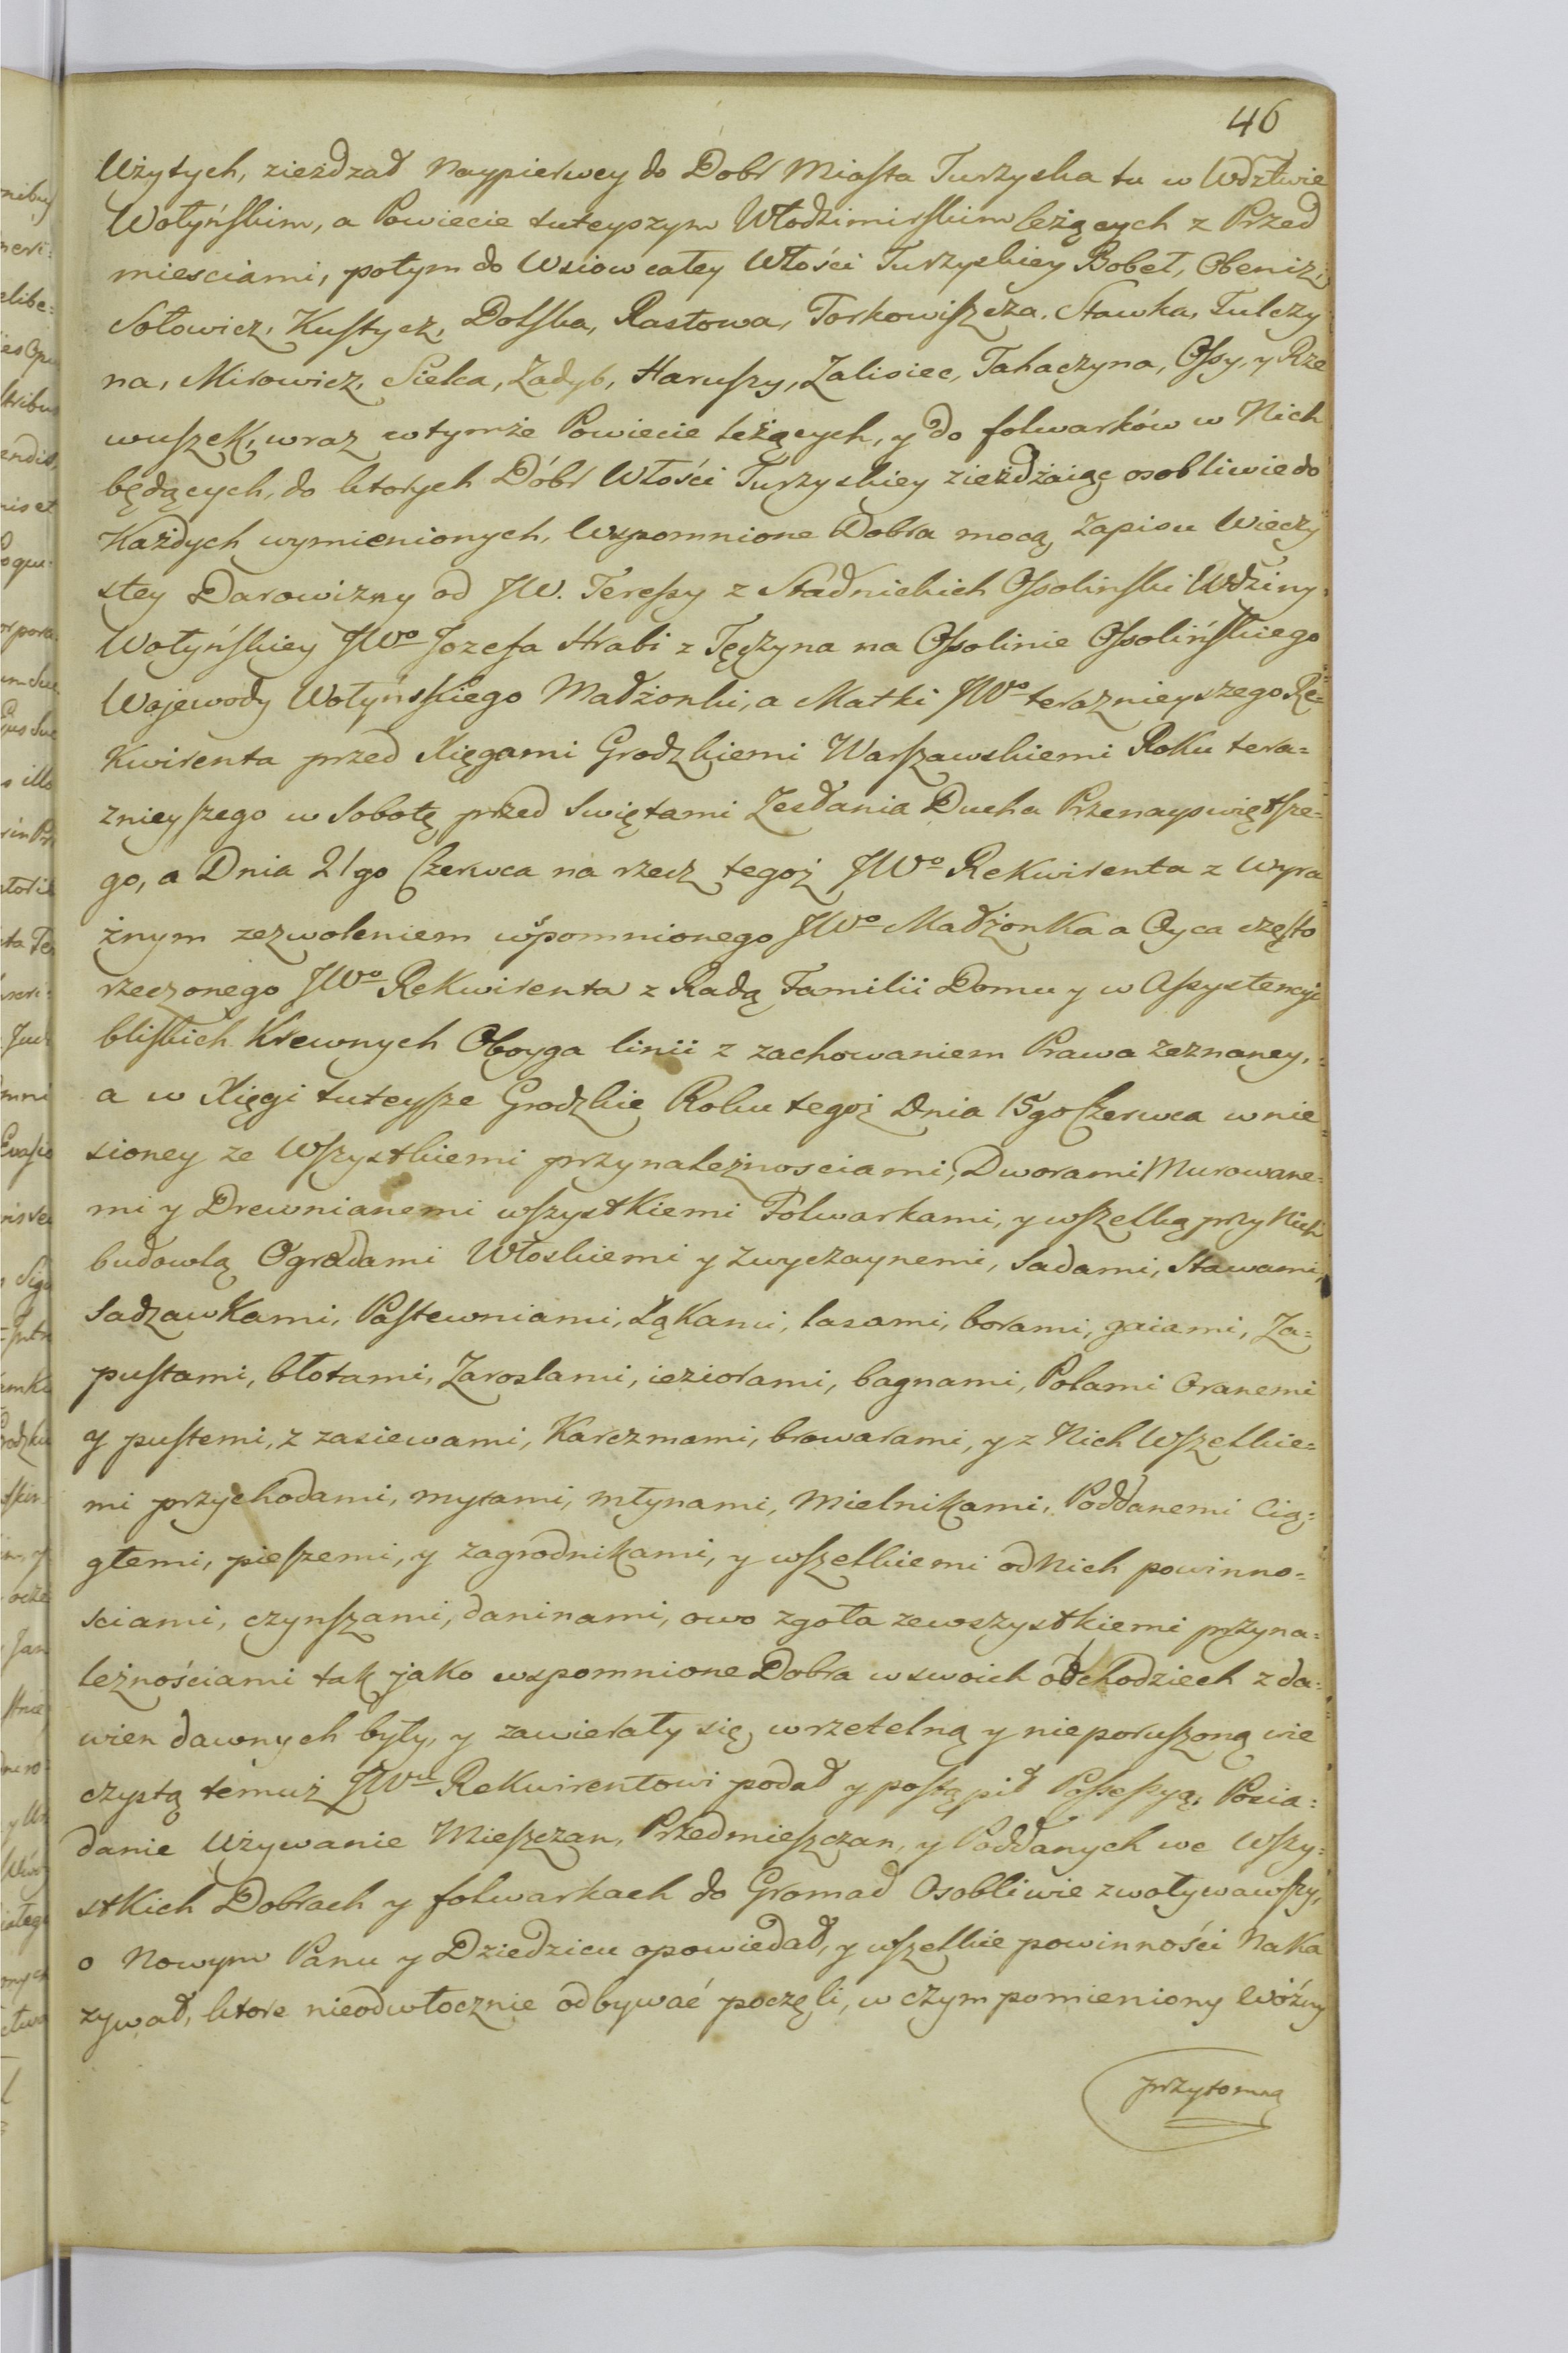 46
Użytych, zieżdzał naypierwey do Dobr Miasta Turzyska tu w Wdztwie
Wołyńskim, a Powiecie tuteyszym Włodzimirskim leżących z Przed
miesciami, potym do Wsiow całey Włości Turzyskiey Bobeł, Obeniżi
Sołowicz, Kustycz, Dolska, Rastowa, Torkowiszcza, Stawka, Tulczy
na, Mirowicz, Sielca, Zadyb, Haruszy, Zalisiec, Tahaczyna, Ossy, y Rze
wuszek, wraz wtymże Powiecie leżących, y do folwarków w Nich
będących, do ktorych Dóbr Włości Turzyskiey zieżdżaiąc osobliwie do
Każdych wymienionych, Wspomnione Dobra mocą Zapisu Wieczy
stey Darowizny od JW. Teressy z Stadnickich Ossolinski Wdziny
Wołyńskiey JWo Jozefa Hrabi z Tęczyna na Ossolinie Ossolińskiego
Wojewody Wołyńskiego Madżonki, a Matki JWo teraznieyszego Re=
kwirenta przed Xięgami Grodzkiemi Warszawskiemi Roku tera=
znieyszego w Sobotę przed Swiętami Zesłania Ducha Przenayswiętsze=
go, a Dnia 21go Czerwca na rzecz tegoż JWo Rekwirenta z wyra
źnym zezwoleniem wspomnionego JWo Madżonka a Oyca często
rzeczonego JWo Rekwirenta z Radą Familii Domu y w Assystencyi
bliskich Krewnych Oboyga linii z zachowaniem Prawa zeznaney,
a w Xięgi tuteysze Grodzkie Roku tegoż Dnia 15go Czerwca wnie=
sioney ze Wszystkiemi przynależnosciami, Dworami Murowane=
mi y Drewnianemi wszystkiemi Folwarkami, y wszelką przy Nich
budowlą Ogrodami Włoskiemi y zwyczaynemi, Sadami, Stawami,
Sadzawkami, Pastewniami, Łąkami, lasami, borami, gaiami, Za=
pustami, błotami, Zaroslami, ieziorami, bagnami, Polami Oranemi
y pustemi, z zasiewami, Karczmami, browarami, y z Nich Wszelkie=
mi przychodami, mytami, młynami, Mielnikami, Poddanemi Cią=
głemi, pieszemi, y zagrodnikami, y wszelkiemi od Nich powinno=
sciami, czynszami, daninami, owo zgoła zewszystkiemi przyna=
leżnościami tak jako wspomnione Dobra w swoich obchodziech z da=
wien dawnych były, y zawierały się, w rzetelną y nieporuszoną wie
czystą temuż JWu Rekwirentowi podał y postąpił Possessyą, Posia=
danie Używanie Mieszczan, Przedmieszczan, y Poddanych we Wszy=
stkich Dobrach y folwarkach do Gromad Osobliwie zwoływawszy,
o Nowym Panu y Dziedzicu opowiedał, y wszelkie powinności Naka
zywał, ktore nieodwłocznie odbywać poczęli, w czym pomieniony Wóźny
przytomną